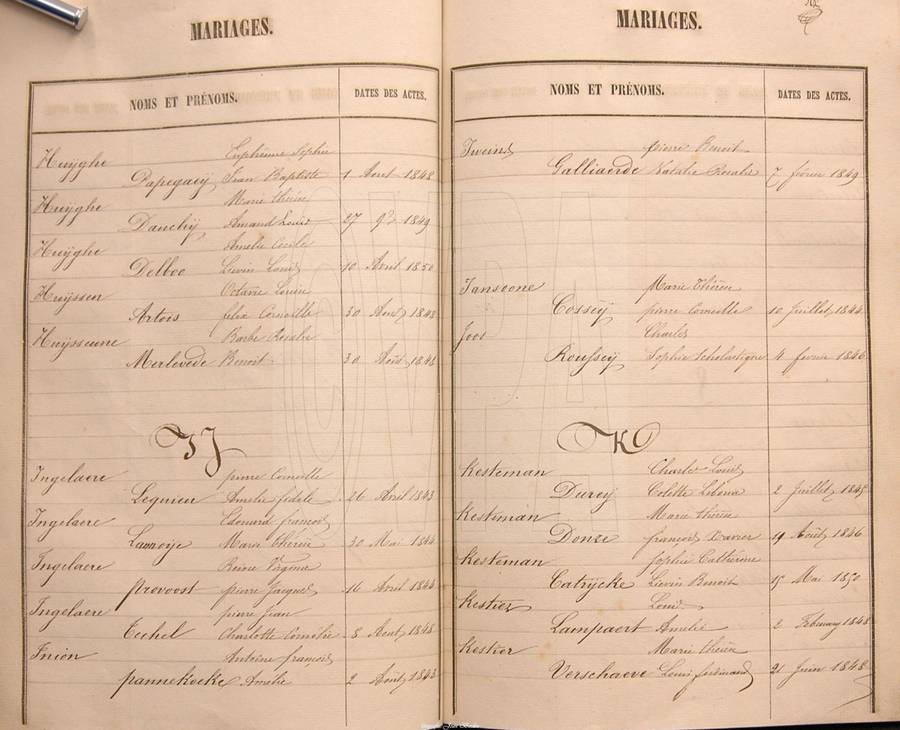 MARIAGES.
NOMS ET PRÉNOMS. DATES DES ACTES.
Huÿghe Euphémie Sophie
Dapegaey Jean Baptiste 1 Aout 1848
Huÿghe Marie thérèse
Dauchÿ Amand Louis 27 9bre 1849
Huÿghe Amelie Cecile
Delboo Liévin Louis 10 Avril 1850
Huÿsser Octavie Louise
Artois felix Corneille 30 Aout 1848
Huysseune Barbe Rosalie
Merlevede Benoit 30 Août 1848
IJ
Ingelaere pierre Corneille
Lequieu Amelie fidele 26 Avril 1843
Ingelaere Edouard françois
Marie thérèse 30 Mai 1844
Ingelaere Reine Virginie
provoost pierre Jacques 14 Avril 1844
Ingelaere pierre Jean
Techel Charlotte Cornélie 8 Aout 1848
Inion Antoine francois
pannekoeke Amelie 2 Août 1843
MARIAGES.
NOMS ET PRÉNOMS. DATES DES ACTES.
Iweins pierre Benoit
Galliaerde Natalie Rosalie 7 fevrier 1849
Jansoone Marie Thérèse
Cosseÿ pierre Corneille 10 Juillet 1844
Joos Charles
Rousseÿ Sophie Scholastique 4 fevrier 1846
K
Kesteman Charles Louis
Durey Colette 2 Juillet 1845
Kesteman Marie thérèse
Donze francois Xavier 19 Août 1846
Kesteman Sophie Cathérine
Catrÿcke Lievin Benoit 15 Mai 1850
Kestier Louis
Lampaert Amelie 2 February 1848
Kestier Marie thérèse
Verschaeve Louis ferdinand 21 Juin 1848